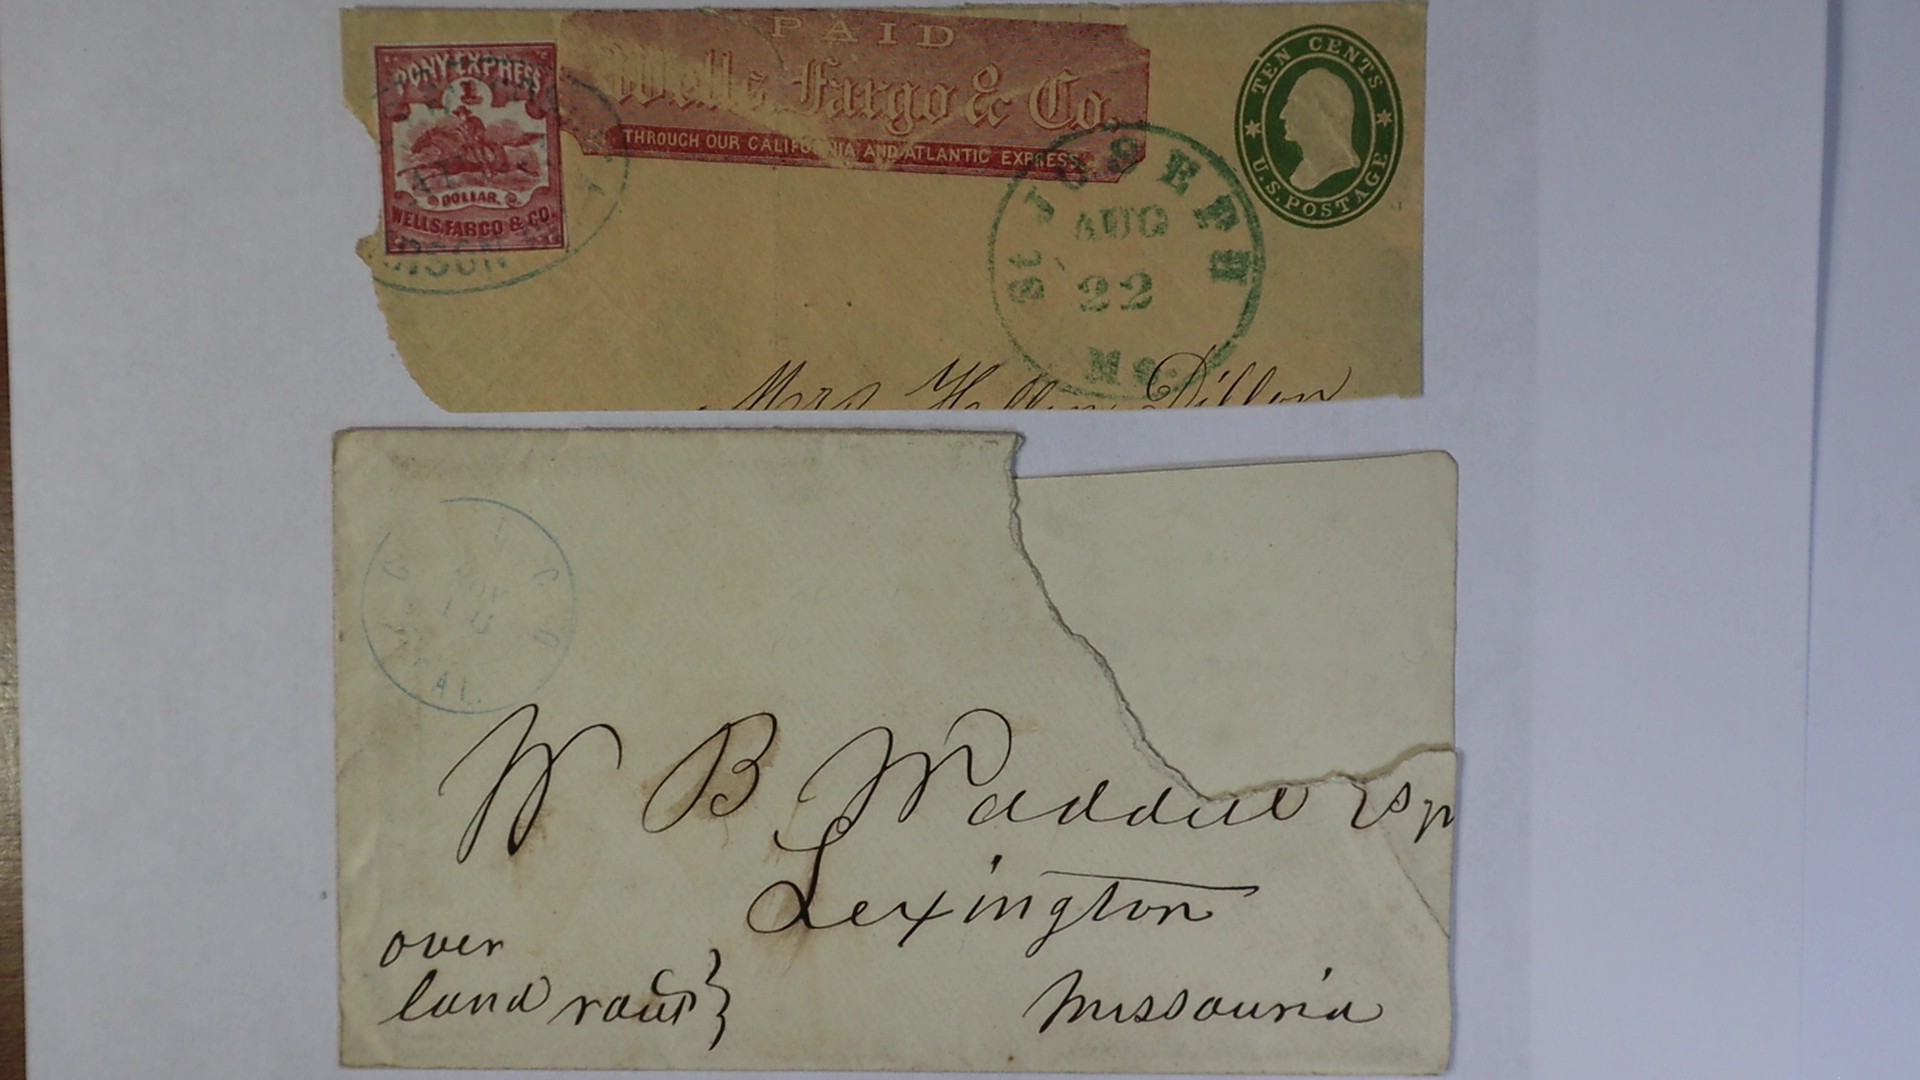 PAID
Wells, Fargo & Co.
THROUGH OUR CALIFORNIA AND ATLANTIC EXPRESS.
PONY EXPRESS
1
DOLLAR.
WELLS, FARGO & CO.
TEN CENTS
U.S. POSTAGE
St JOSEPH
AUG
22
Mo.
Mrs Hellen Dillon
NOV
CAL.
W B Waddell Esqr
Lexington
Missouria
over
land rout